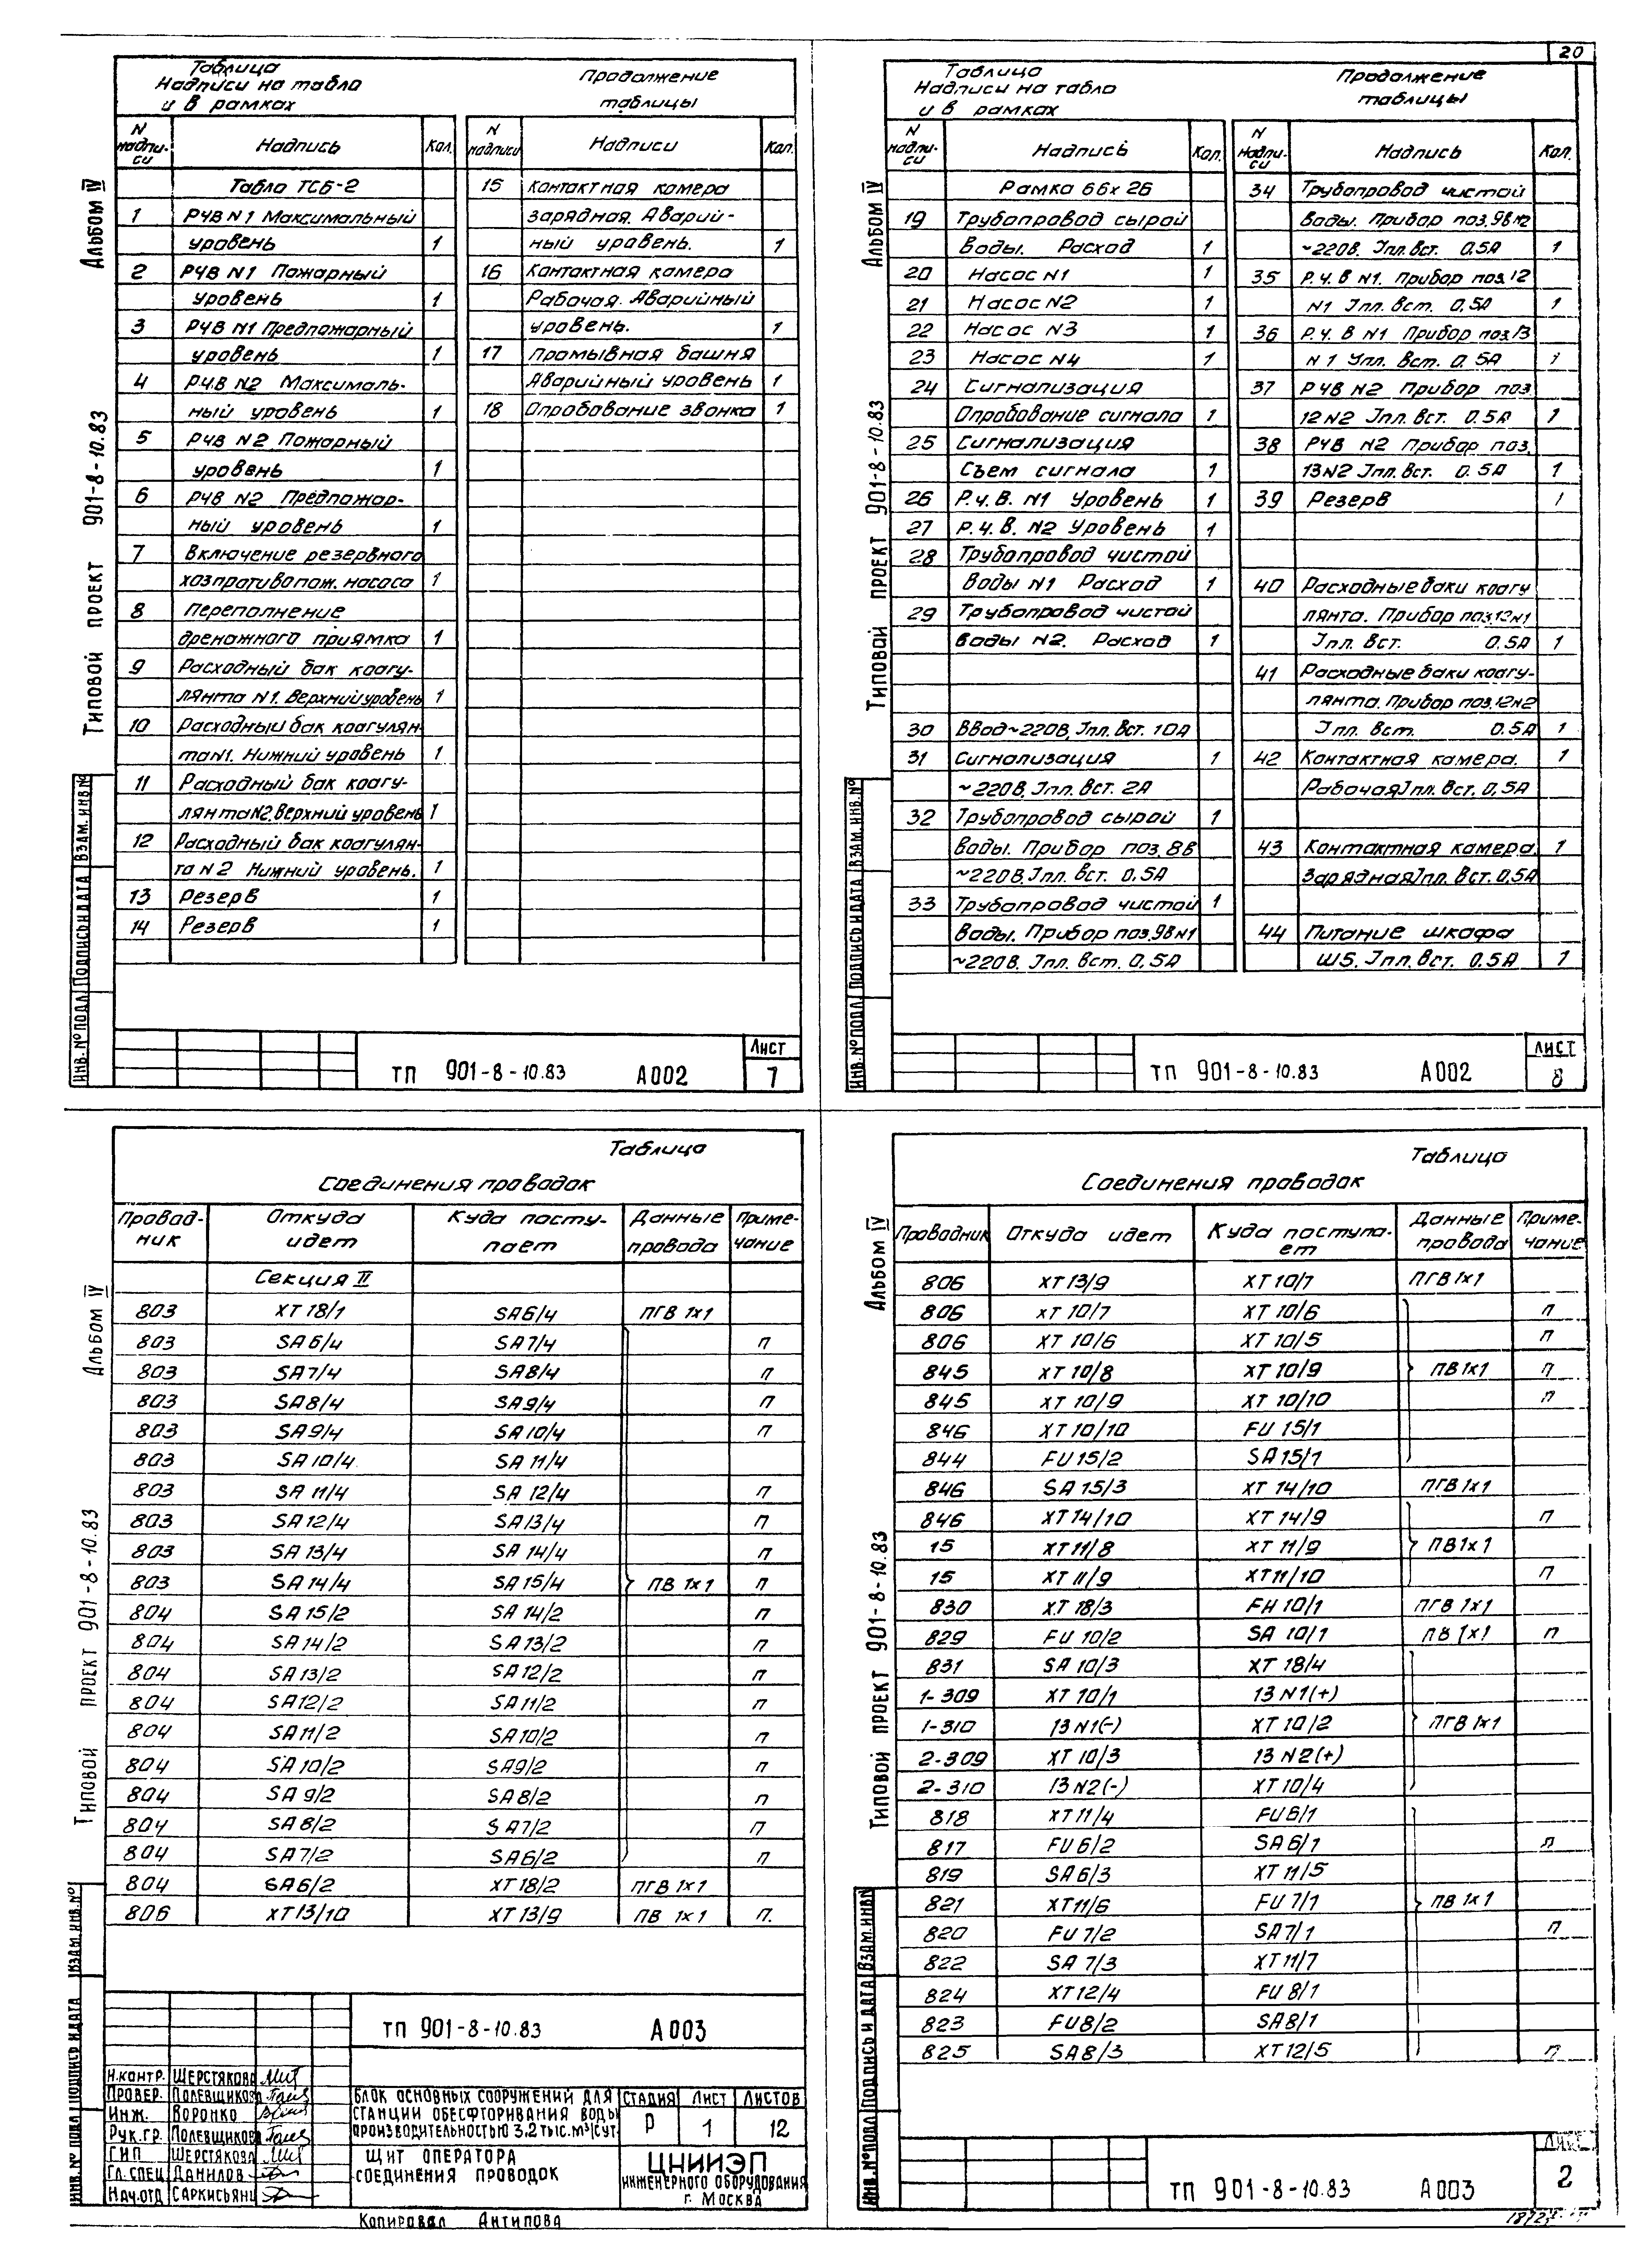 20
Таблица
Надписи на табло
и в рамках
Продолжение
таблицы
N надпи-си Надпись Кол.
N надписи Надписи Кол.
Табло ТСБ-2
1 РЧВ N1 Максимальный
уровень 1
2 РЧВ N1 Пожарный
уровень 1
3 РЧВ N1 Предпожарный
уровень 1
4 РЧВ N2 Максималь-
ный уровень 1
5 РЧВ N2 Пожарный
уровень 1
6 РЧВ N2 Предпожар-
ный уровень 1
7 Включение резервного
хозпротивопож. насоса 1
8 Переполнение
дренажного приямка 1
9 Расходный бак коагу-
лянта N1. Верхний уровень 1
10 Расходный бак коагулян-
та N1. Нижний уровень 1
11 Расходный бак коагу-
лянта N2. Верхний уровень 1
12 Расходный бак коагулян-
та N2 Нижний уровень. 1
13 Резерв 1
14 Резерв 1
15 Контактная камера
зарядная. Аварий-
ный уровень. 1
16 Контактная камера
Рабочая. Аварийный
уровень. 1
17 Промывная башня
Аварийный уровень 1
18 Опробование звонка 1
Альбом IV
Типовой проект 901-8-10.83
Инв. № подл Подпись и дата Взам. инв. №
ТП 901-8-10.83 А002
Лист
7
Таблица
Надписи на табло
и в рамках
Продолжение
таблицы
N надпи-си Надпись Кол.
N надпи-си Надпись Кол.
Рамка 66х26
19 Трубопровод сырой
воды. Расход 1
20 Насос N1 1
21 Насос N2 1
22 Насос N3 1
23 Насос N4 1
24 Сигнализация
Опробование сигнала 1
25 Сигнализация
Съем сигнала 1
26 Р.ч.в. N1 Уровень 1
27 Р.ч.в. N2 Уровень 1
28 Трубопровод чистой
воды N1 Расход 1
29 Трубопровод чистой
воды N2. Расход 1
30 Ввод ~220В, Iпл. Вст. 10А
31 Сигнализация 1
~220В, Iпл. вст. 2А
32 Трубопровод сырой 1
воды. Прибор поз. 8в
~220В, Iпл. Вст. 0.5А
33 Трубопровод чистой 1
воды. Прибор поз. 9в N1
~220В. Iпл. Вст. 0.5А
34 Трубопровод чистой
воды. Прибор поз. 9в N2
~220В. Iпл. вст. 0.5А 1
35 Р.ч.в N1. Прибор поз. 12
N1 Iпл. вст. 0,5А 1
36 Р.ч.в N1 Прибор поз. 13
N1 Iпл. Вст. 0.5А 1
37 РЧВ N2 Прибор поз.
12 N2 Iпл. вст. 0.5А 1
38 РЧВ N2 Прибор поз.
13 N2 Iпл. Вст. 0.5А 1
39 Резерв 1
40 Расходные баки коагу
лянта. Прибор поз. 12 N1
Iпл. Вст. 0,5А 1
41 Расходные баки коагу-
лянта. Прибор поз. 12 N2
Iпл. вст. 0.5А 1
42 Контактная камера. 1
Рабочая Iпл. Вст. 0.5А
43 Контактная камера 1
Зарядная Iпл. Вст. 0,5А
44 Питание шкафа
Ш5. Iпл. Вст. 0.5А 1
Альбом IV
Типовой проект 901-8-10.83
Инв. № подл Подпись и дата Взам. инв. №
ТП 901-8-10.83 А002
Лист
8
Таблица
Соединения проводок
Провод-ник Откуда идет Куда посту-пает Данные провода Приме-чание
Секция II
803 ХТ 18/1 SA6/4 ПГВ 1х1
803 SA6/4 SA7/4 п
803 SA7/4 SA8/4 п
803 SA8/4 SA9/4 п
803 SA9/4 SA10/4 п
803 SA10/4 SA11/4
803 SA11/4 SA12/4 п
803 SA12/4 SA13/4 п
803 SA13/4 SA14/4 п
803 SA14/4 SA15/4 ПВ 1х1 п
804 SA15/2 SA14/2 п
804 SA14/2 SA13/2 п
804 SA13/2 SA12/2 п
804 SA12/2 SA11/2 п
804 SA11/2 SA10/2 п
804 SA10/2 SA9/2 п
804 SA9/2 SA8/2 п
804 SA8/2 SA7/2 п
804 SA7/2 SA6/2 п
804 SA6/2 ХТ18/2 ПГВ 1х1
806 ХТ13/10 ХТ13/9 ПВ 1х1 п.
Альбом IV
Типовой проект 901-8-10.83
Инв. № подл Подпись и дата Взам. инв. №
ТП 901-8-10.83 А003
Н.контр. Шерстякова
Провер. Полевщикова
Инж. Воронко
Рук.гр. Полевщикова
ГИП Шерстякова
Гл. спец Данилов
Нач.отд Саркисьянц
Блок основных сооружений для
станции обесфторивания воды
производительностью 3.2 тыс. м³/сут
Щит оператора
Соединения проводок
Стадия Лист Листов
Р 1 12
ЦНИИЭП
инженерного оборудования
г. Москва
Копировал Антипова
Таблица
Соединения проводок
Проводник Откуда идет Куда поступа-ет Данные провода Приме-чание
806 ХТ13/9 ХТ10/7 ПГВ 1х1
806 ХТ10/7 ХТ10/6 п
806 ХТ10/6 ХТ10/5 п
845 ХТ10/8 ХТ10/9 ПВ1х1 п
845 ХТ10/9 ХТ10/10 п
846 ХТ10/10 FU15/1
844 FU15/2 SA15/1
846 SA15/3 ХТ14/10 ПГВ 1х1
846 ХТ14/10 ХТ14/9 п
15 ХТ11/8 ХТ11/9 ПВ1х1
15 ХТ11/9 ХТ11/10 п
830 ХТ18/3 FH10/1 ПГВ 1х1
829 FU10/2 SA10/1 ПВ 1х1 п
831 SA10/3 ХТ18/4
1-309 ХТ10/1 13N1(+)
1-310 13N1(-) ХТ10/2 ПГВ 1х1
2-309 ХТ10/3 13N2(+)
2-310 13N2(-) ХТ10/4
818 ХТ11/4 FU6/1
817 FU6/2 SA6/1 п
819 SA6/3 ХТ11/5
821 ХТ11/6 FU7/1 ПВ 1х1
820 FU7/2 SA7/1 п
822 SA7/3 ХТ11/7
824 ХТ12/4 FU8/1
823 FU8/2 SA8/1
825 SA8/3 ХТ12/5 п
Альбом IV
Типовой проект 901-8-10.83
Инв. № подл Подпись и дата Взам. инв
ТП 901-8-10.83 А003
Лист
2